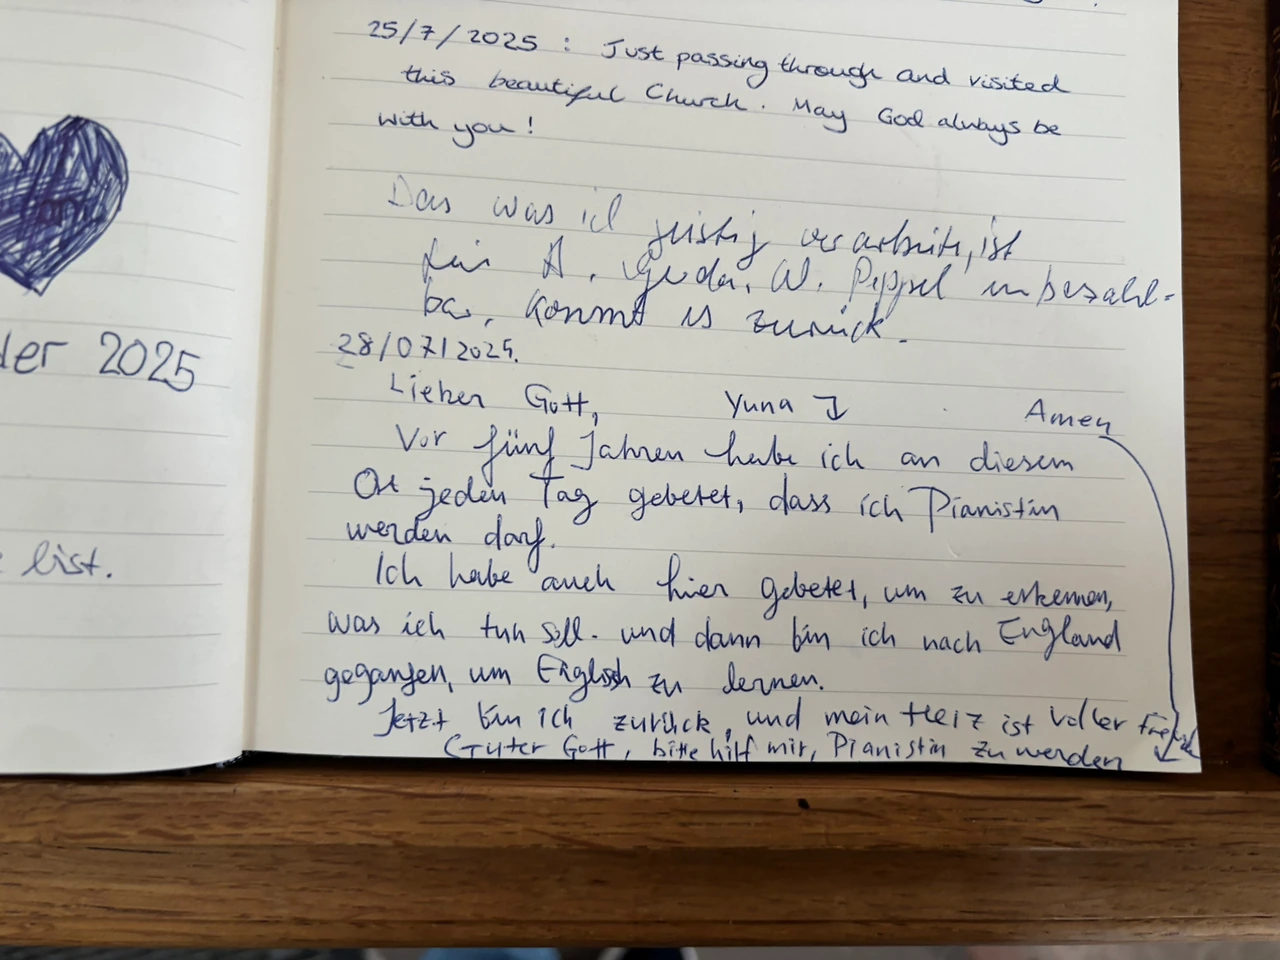 der 2025
list.
25/7/2025 : Just passing through and visited
this beautiful Church. May God always be
with you!
Das was ich geistig verarbeite, ist
für A. W. Peppel unbezahl=
bar, kommt es zurück.
28/07/2025.
Lieber Gott, Yuna Amen
Vor fünf Jahren habe ich an diesem
Ort jeden Tag gebetet, dass ich Pianistin
werden darf.
Ich habe auch hier gebetet, um zu erkennen,
was ich tun soll. und dann bin ich nach England
gegangen, um Englisch zu lernen.
Jetzt bin ich zurück, und mein Herz ist voller Freude
Guter Gott, bitte hilf mir, Pianistin zu werden